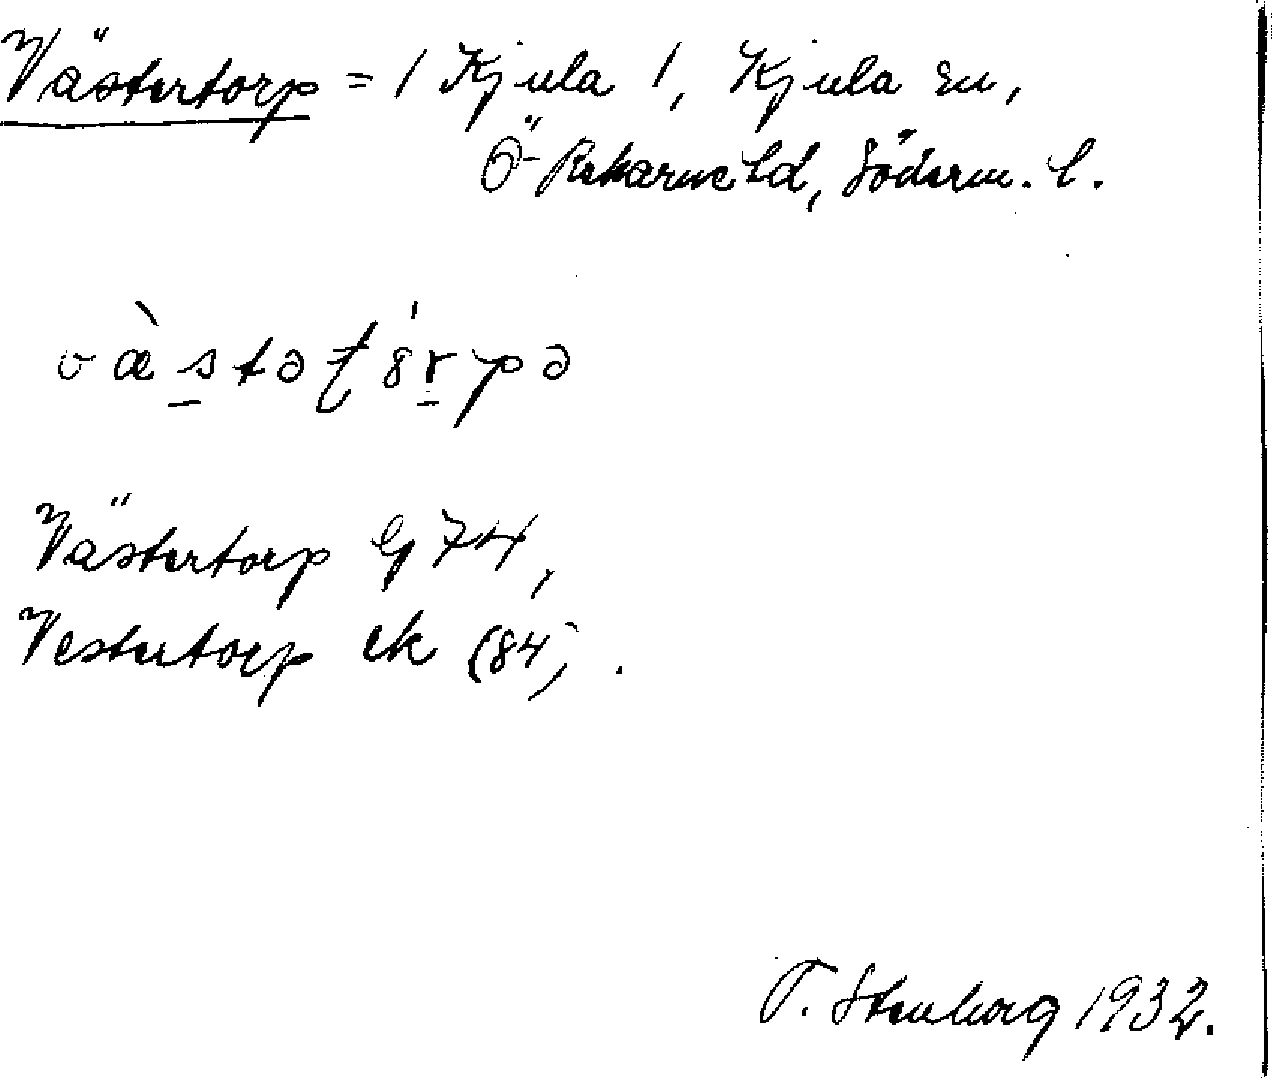 Västertorp = 1 Kjula 1, Kjula sn,
Ö Rekarne hd, Söderm. l.
Västertorp G 74,
Vestertorp ek (84)
T. Stenberg 1932.